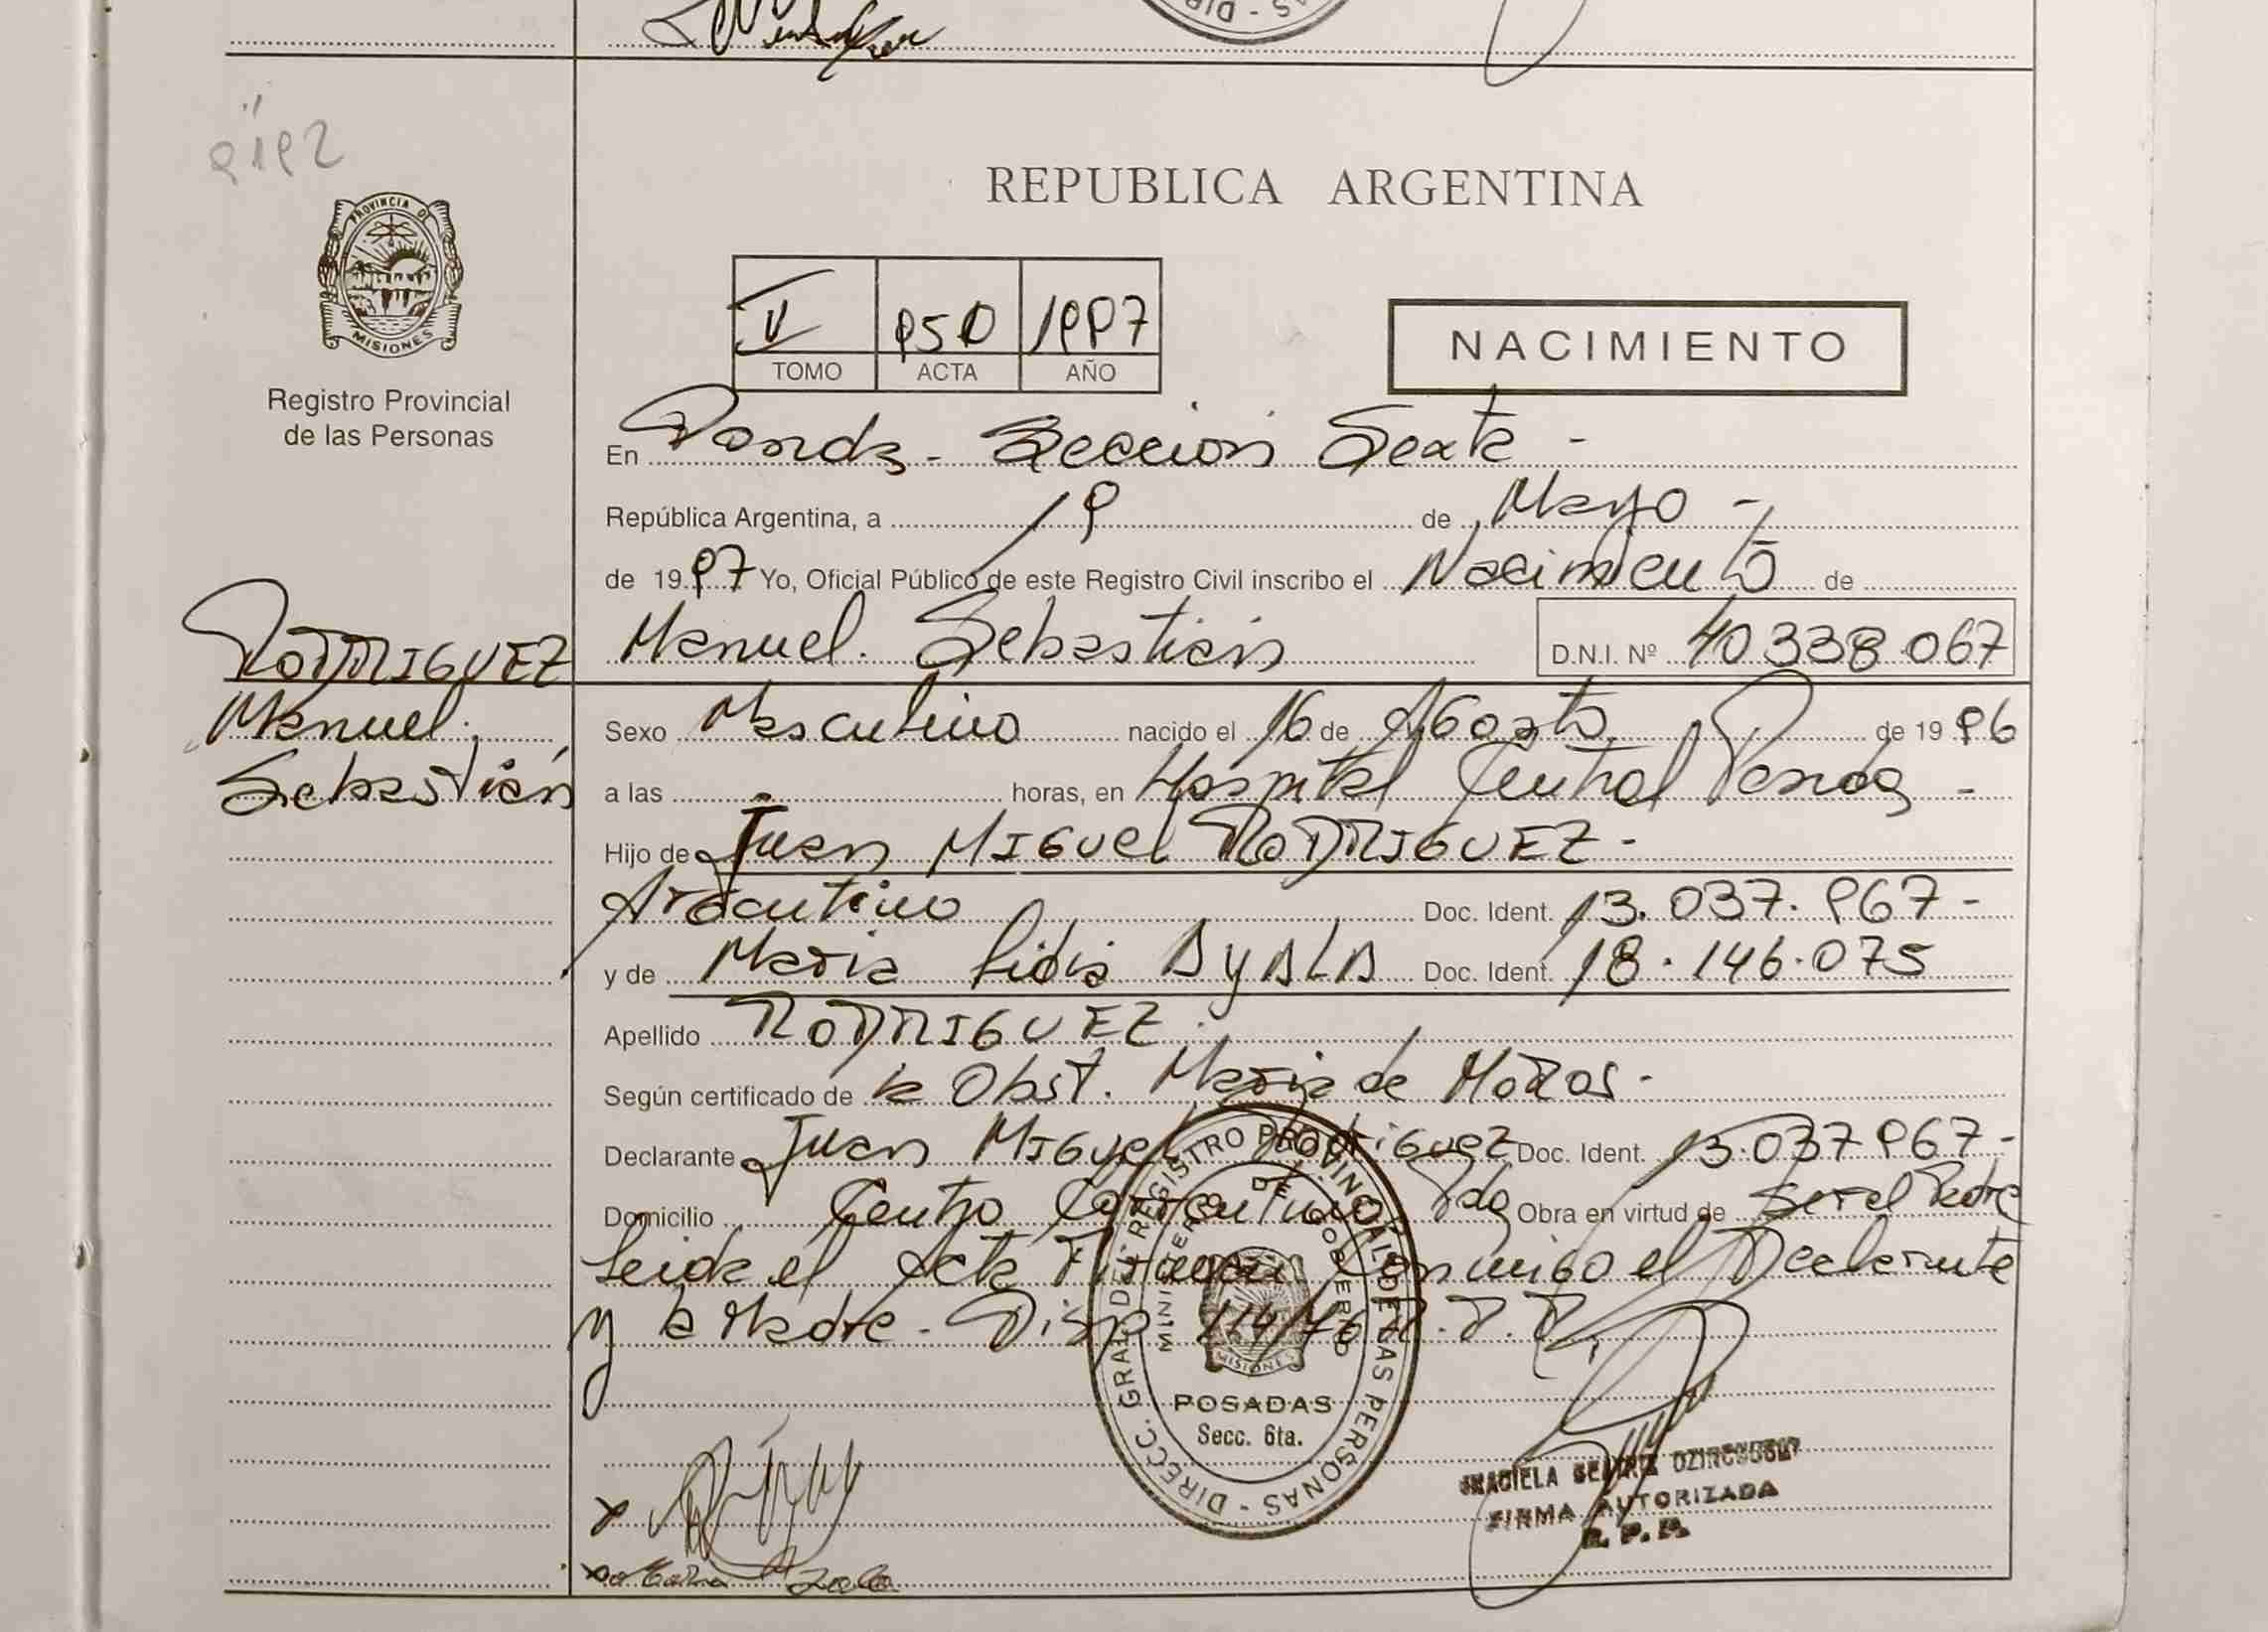 9192
PROVINCIA DE
MISIONES
Registro Provincial
de las Personas
REPUBLICA ARGENTINA
V 950 1997
TOMO ACTA AÑO
NACIMIENTO
En Posadas - Sección Sexta -
República Argentina, a 19 de Mayo -
de 19 97 Yo, Oficial Público de este Registro Civil inscribo el Nacimiento de
RODRIGUEZ
Manuel
Sebastián
Manuel Sebastián D.N.I. Nº 40338067
Sexo Masculino nacido el 16 de Agosto de 19 96
a las - horas, en Hospital Central Posadas -
Hijo de Juan Miguel RODRIGUEZ -
Argentino Doc. Ident. 13.037.967 -
y de Maria Lidia AYALA Doc. Ident. 18.146.075
Apellido RODRIGUEZ
Según certificado de la Obst. Maria de
Declarante Juan Miguel Rodriguez Doc. Ident. 13.037967 -
Domicilio Centro Pdas Obra en virtud de Ser el Padre
Leida el Acta Firman Conmigo el Declarante
y la Madre - Disp 114/76 R.P.P.
DIRECC. GRAL. DEL REGISTRO PROVINCIAL DE LAS PERSONAS
MINISTERIO DE GOBIERNO
MISIONES
POSADAS
Secc. 6ta.
GRACIELA BEATRIZ
FIRMA AUTORIZADA
R.P.P.
DIR - AS